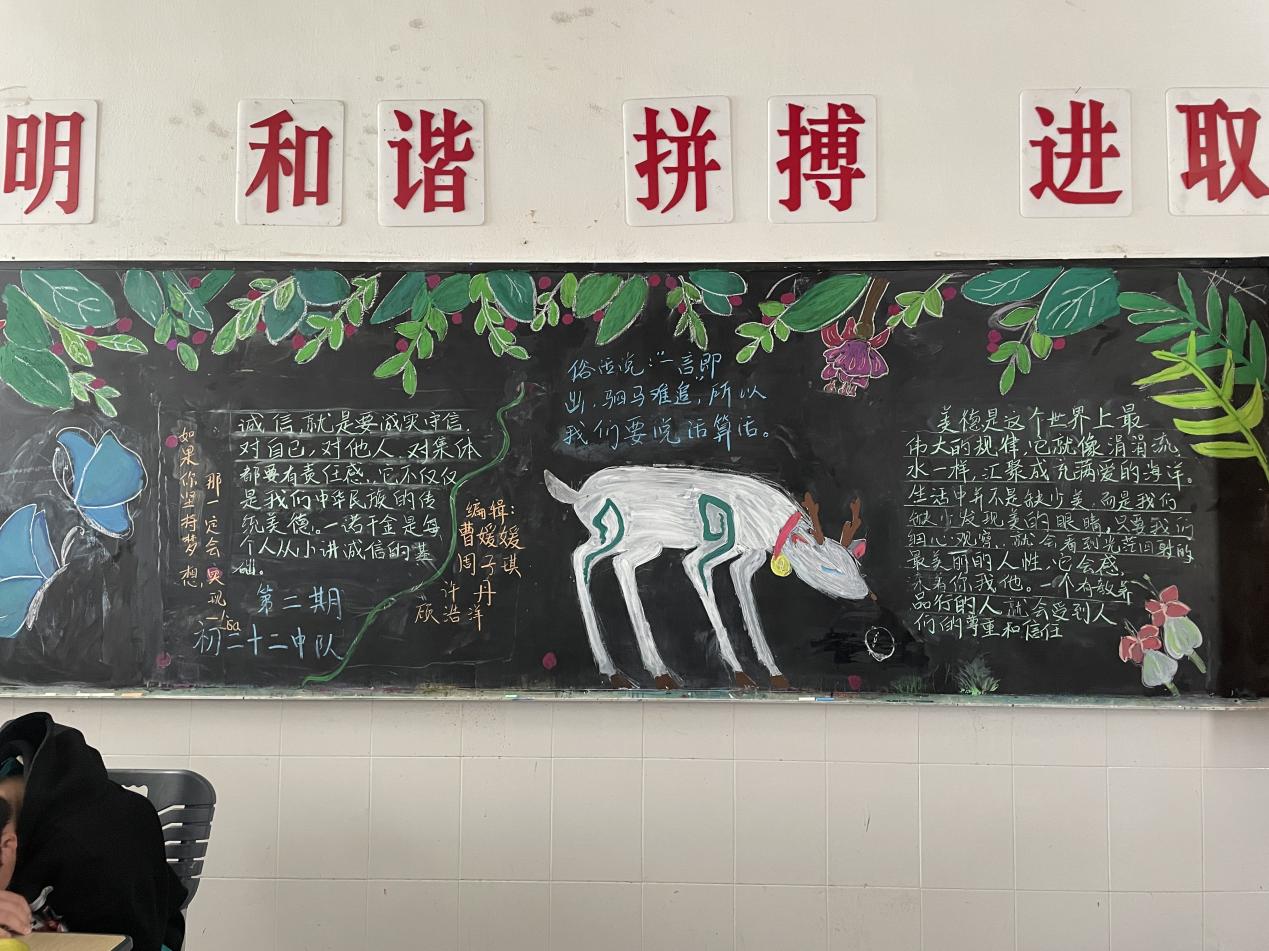 明 和 谐 拼 搏 进 取
如果你坚持梦想
那一定会实现
诚信，就是要诚实守信，
对自己，对他人，对集体
都要有责任感，它不仅仅
是我们中华民族的传
统美德。一诺千金是每
个人从小讲诚信的基
础。
第二期
初二十二中队
编辑：
曹媛媛
周子琪
许丹
顾浩洋
俗话说：“一言即
出，驷马难追”，所以
我们要说话算话。
美德是这个世界上最
伟大的规律，它就像涓涓流
水一样，汇聚成充满爱的海洋。
生活中并不是缺少美，而是我们
缺少发现美的眼睛，只要我们
细心观察，就会看到光茫四射的
最美丽的人性，它会感
染着你我他。一个有教养
品行的人就会受到人
们的尊重和信任